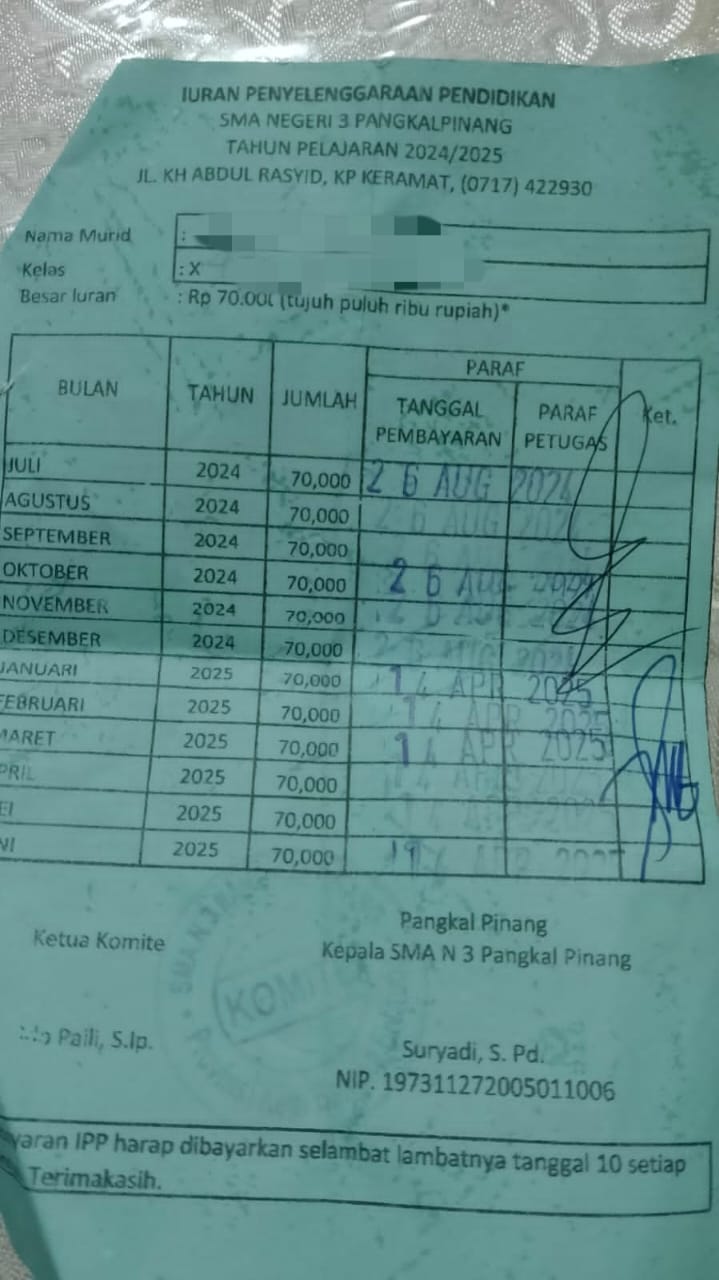 IURAN PENYELENGGARAAN PENDIDIKAN
SMA NEGERI 3 PANGKALPINANG
TAHUN PELAJARAN 2024/2025
JL. KH ABDUL RASYID, KP KERAMAT, (0717) 422930
Nama Murid :
Kelas : X
Besar Iuran : Rp 70.00 (tujuh puluh ribu rupiah)*
PARAF
BULAN TAHUN JUMLAH TANGGAL PEMBAYARAN PARAF PETUGAS Ket.
JULI 2024 70,000 26 AUG 2024
AGUSTUS 2024 70,000 26 AUG 2024
SEPTEMBER 2024 70,000
OKTOBER 2024 70,000 26 AUG 2024
NOVEMBER 2024 70,000 26 AUG 2024
DESEMBER 2024 70,000 26 AUG 2024
JANUARI 2025 70,000 14 APR 2025
FEBRUARI 2025 70,000 14 APR 2025
MARET 2025 70,000 14 APR 2025
PRIL 2025 70,000 14 APR 2025
EI 2025 70,000 14 APR 2025
NI 2025 70,000 14 APR 2025
Pangkal Pinang
Ketua Komite Kepala SMA N 3 Pangkal Pinang
SMA N 3
KOMITE
Paili, S.Ip. Suryadi, S. Pd.
NIP. 197311272005011006
yaran IPP harap dibayarkan selambat lambatnya tanggal 10 setiap
Terimakasih.